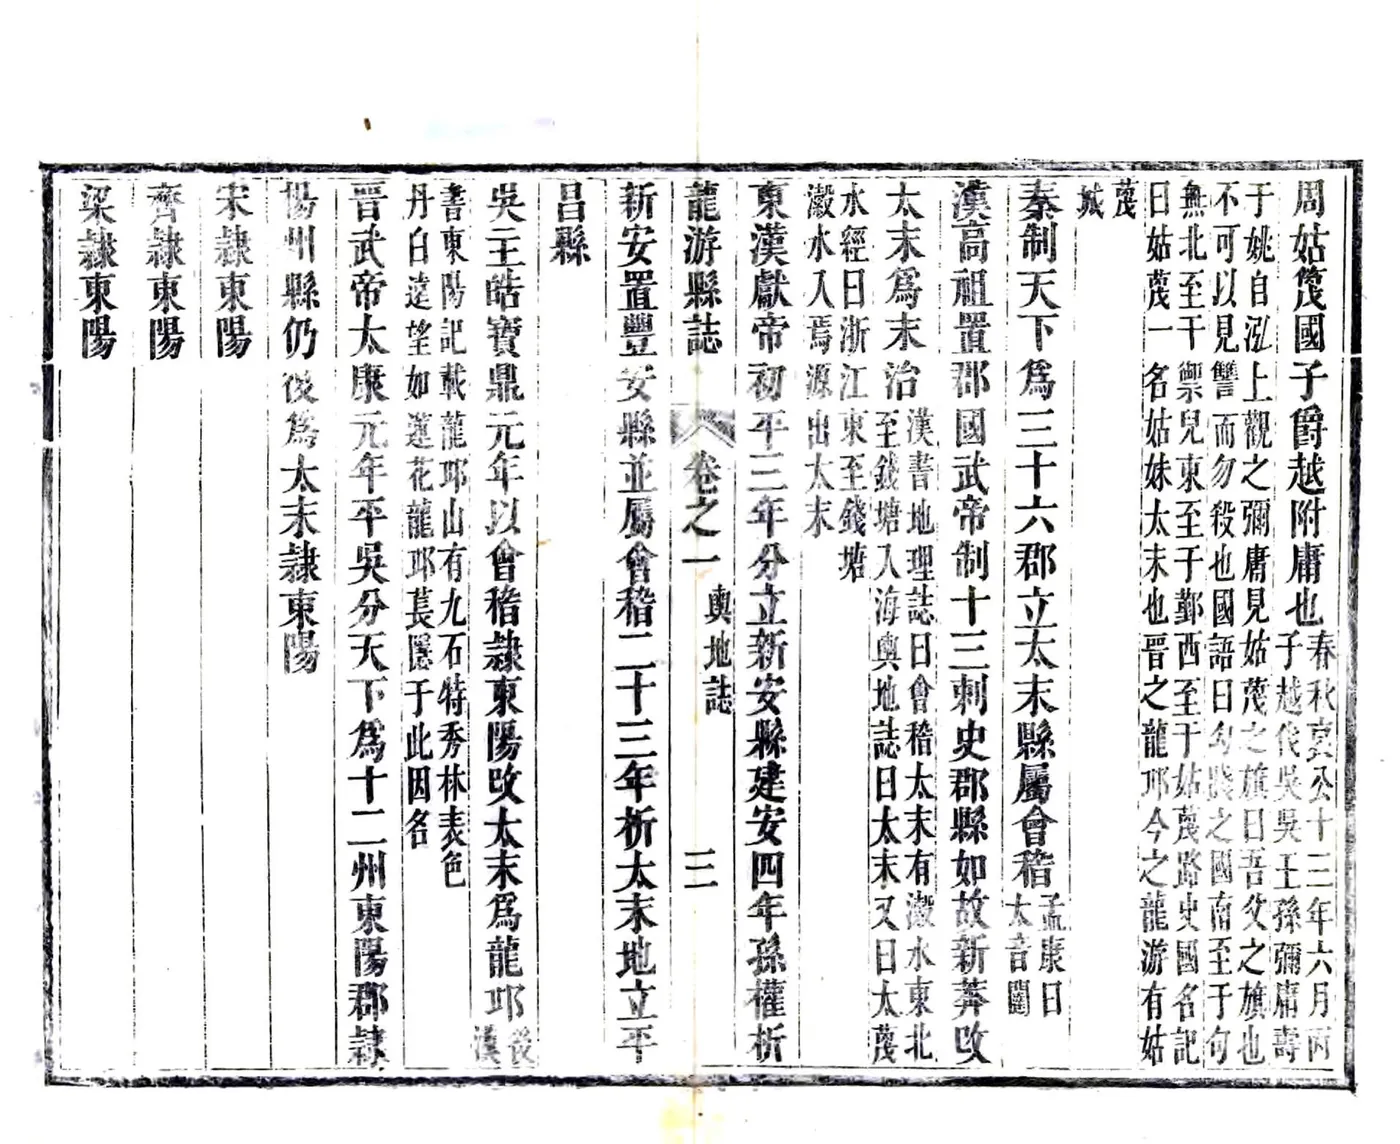 周姑篾國子爵越附庸也春秋哀公十三年六月丙
子越伐吳吳王孫彌庸壽
于姚自泓上觀之彌庸見姑蔑之旗曰吾父之旗也
不可以見讐而勿殺也國語曰勾踐之國南至于句
無北至干禦兒東至于鄞西至于姑蔑路史國名記
曰姑蔑一名姑妹太末也晋之龍邱今之龍游有姑
蔑
城
秦制天下爲三十六郡立太末縣屬會稽孟康曰
太音闥
漢高祖置郡國武帝制十三刺史郡縣如故新莽改
太末爲末治漢書地理誌曰會稽太末有瀫水東北
至錢塘入海輿地誌曰太末又曰大蔑
水經曰浙江東至錢塘
瀫水入焉源出太末
東漢獻帝初平三年分立新安縣建安四年孫權析
龍游縣誌 卷之一 輿地誌 三
新安置豐安縣並屬會稽二十三年析太末地立平
昌縣
吳王皓寶鼎元年以會稽隸東陽改太末爲龍邱後
漢
書東陽記載龍邱山有九石特秀林表色
丹白遠望如蓮花龍邱萇隱于此因名
晋武帝太康元年平吳分天下爲十二州東陽郡隸
揚州縣仍後爲太末隸東陽
宋隸東陽
齊隸東陽
梁隸東陽